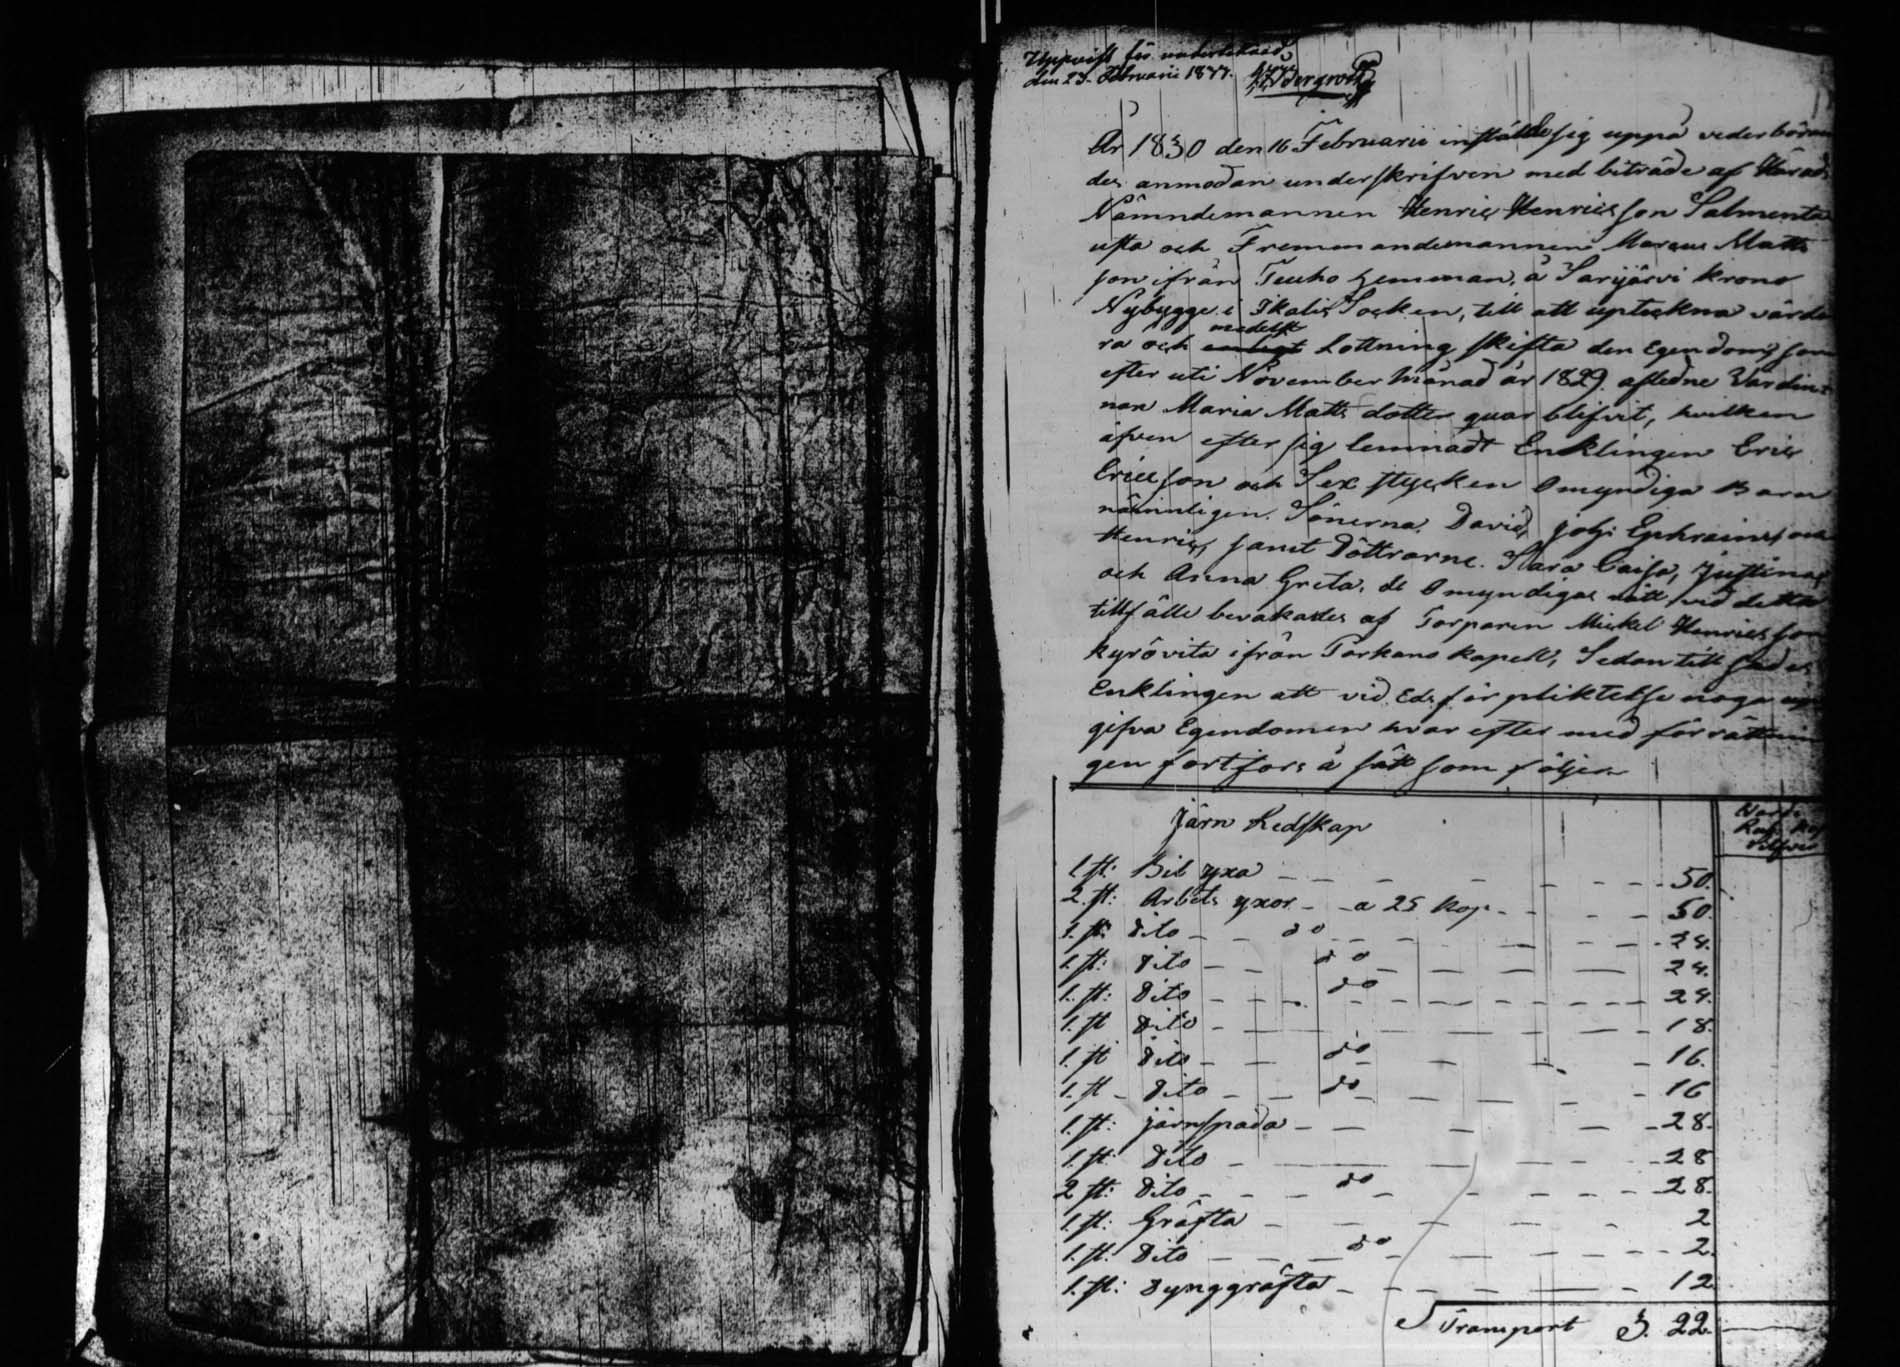 Uppvist för undertecknad
den 23. Februarii 1877. Bergroth
År 1830 den 16 Februarii instälde sig uppå vederböran
des anmodan underskrifven med biträde af Härads
Nämndemannen Henric Henricsson Salmenta
usta och Fremmandemannen Marcus Matts
son ifrån Tuuho hemman, å Sarijärvi Krono
Nybygge i Ikalis Socken, till att upteckna värde
ra och medelst Lottning skifta den Egendom, som
efter uti November månad år 1829 afledne Värdin
nan Maria Matts dotter quar blifvit, hvilken
äfven efter sig lemnadt Enklingen Eric
Ericsson och Sex stycken Omyndiga Barn
nämnligen. Sönerna David, Joh: Ephraim, och
Henric, samt Döttrarne. Clara Caisa, Justina,
och Anna Greta, de Omyndigas rätt vid detta
tillfälle bevakades af Torparen Mickel Henricsson
Kyrövita ifrån Parkano Kapell, Sedan till sades
Enklingen att vid Eds förpliktelse noga upp
gifva Egendomen hvar efter med förrättnin
gen fortfors å sätt som följer
Järn Redskap
Rub. Kop
Silfver
1. st: Bil yxa 50.
2. st: Arbets yxor a 25 Kop 50.
1. st: Dito do 24.
1. st: Dito do 24.
1. st: Dito do 24.
1. st Dito 18.
1. st Dito do 16.
1. st Dito do 16
1. st: järnspada 28.
1. st: Dito 28
2 st: Dito do 28.
1. st: Gräfta 2
1. st: Dito do 2.
1. st: Dynggräfta 12
Transport 3. 22.